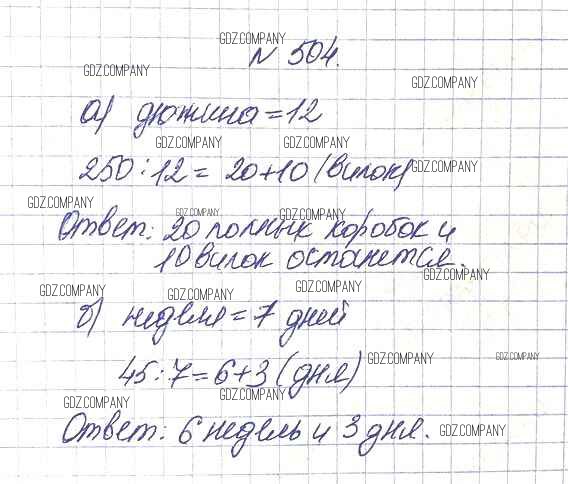 GDZ.COMPANY
N 504.
GDZ.COMPANY
GDZ.COMPANY
а) дюжина = 12
GDZ.COMPANY GDZ.COMPANY
250 : 12 = 20 + 10 (вилок)
GDZ.COMPANY
GDZ.COMPANY
GDZ.COMPANY GDZ.COMPANY
Ответ: 20 полных коробок и
10 вилок останется.
GDZ.COMPANY
GDZ.COMPANY GDZ.COMPANY GDZ.COMPANY
б) неделя = 7 дней
GDZ.COMPANY GDZ.COMPANY
45 : 7 = 6 + 3 (дня)
GDZ.COMPANY GDZ.COMPANY
Ответ: 6 недель и 3 дня.
GDZ.COMPANY